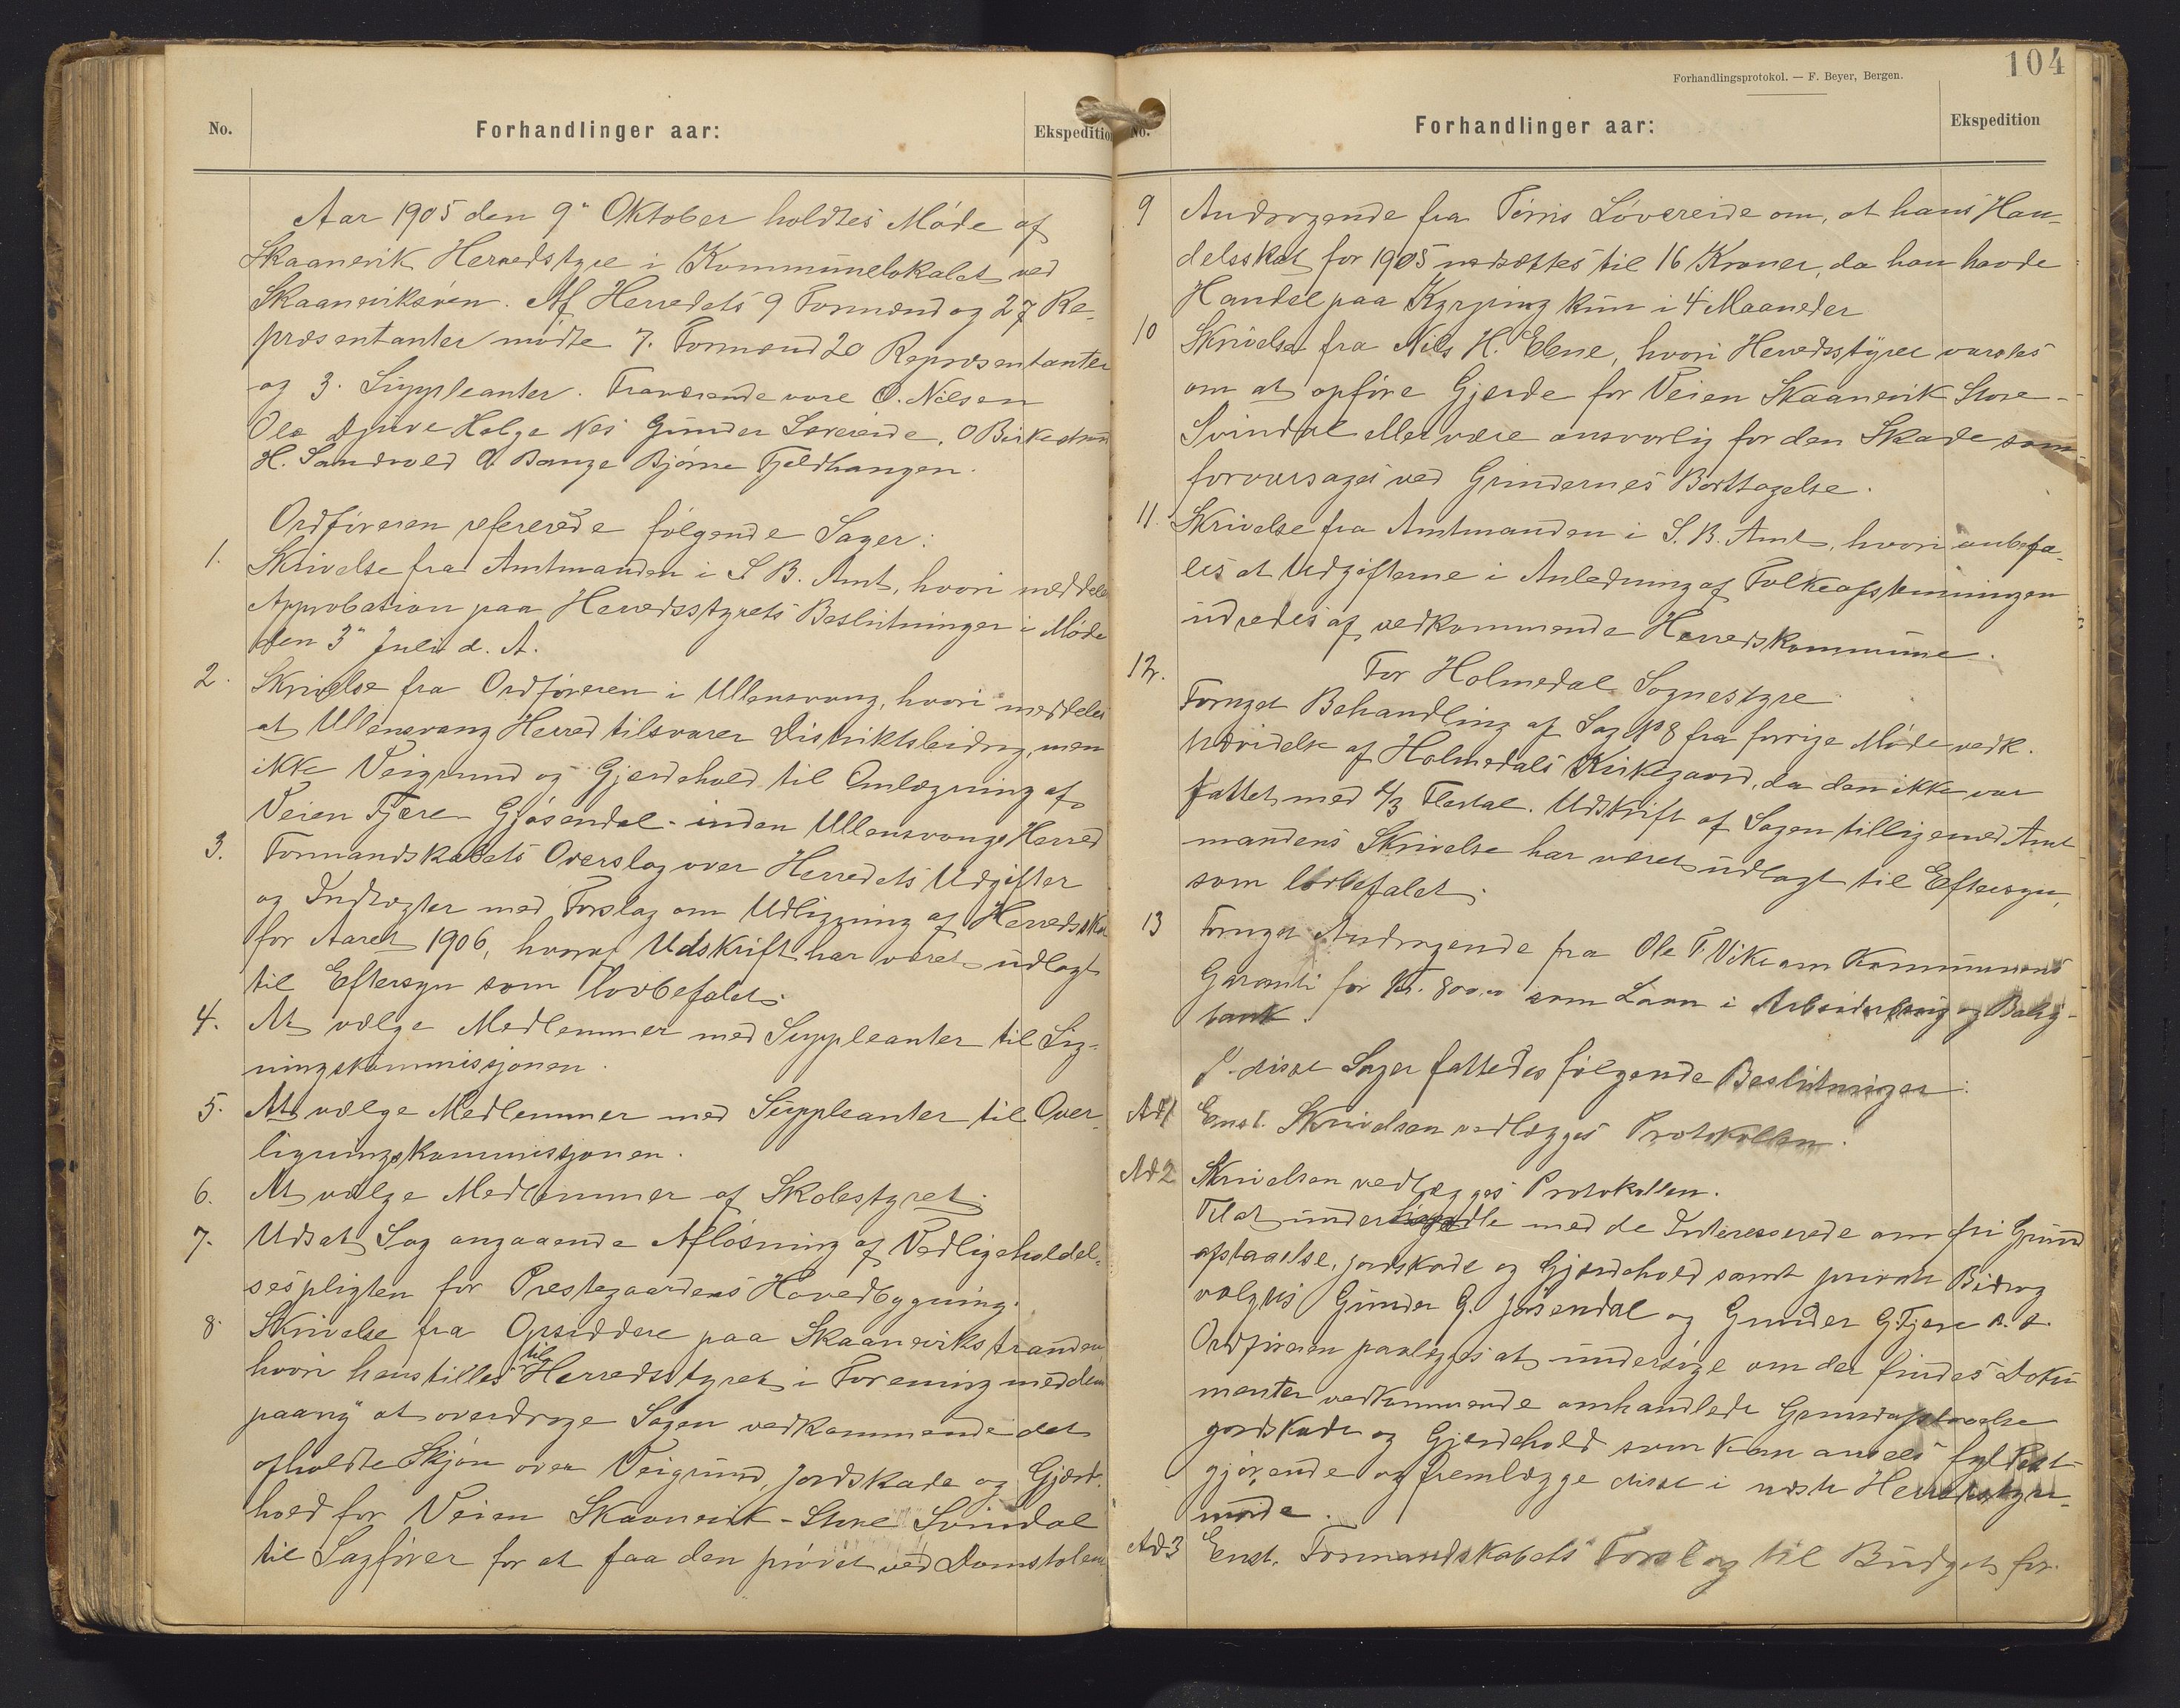 No.
Forhandlinger aar:
Ekspedition
Aar 1905 den 9" Oktober holdtes Møde af
Skaanevik Herredstyre i Kommunelokalet ved
Skaaneviksøren. Af Herredets 9 Formænd og 27 Re-
præsentanter mødte 7. Formænd 20 Repræsentanter
og 3. Suppleanter. Fraværende vare O. Nilsen
Ole Djuve Helge Nes Gunder Løvereide. O Birkedwn
H. Sandvold O. Bauge Bjørne Fjeldhaugen.
Ordføreren refererede følgende Sager:
1. Skrivelse fra Amtmanden i S B. Amt, hvori meddeles
Approbation paa Herredsstyrets Beslutninger i Møde
den 3" Juli d. A.
2. Skrivelse fra Ordføreren i Ullensvang, hvori meddeles
at Ullensvang Herred tilsvarer Distriktsbidrag, men
ikke Veigrund og Gjærdehold til Omlægning af
Veien Fjære Gjøsendal - inden Ullensvangs Herred
3. Formandskabets Overslag over Herredets Udgifter
og Indtægter med Forslag om Udligning af Herredsskat
for Aaret 1906, hvoraf Udskrift har været udlagt
til Eftersyn som lovbefalet.
4. At vælge Medlemmer med Suppleanter til Lig-
ningskommissjonen.
5. At vælge Medlemmer med Suppleanter til Over-
ligningskommissjonen.
6. At vælge Medlemmer af Skolestyret.
7. Udsat Sag angaaende Afløsning af Vedligeholdel-
sespligten for Prestegaardens Hovedbygning.
8. Skrivelse fra Opsiddere paa Skaanevikstranden,
hvori henstilles til Herredsstyret i Forening med dem
paany at overdrage Sagen vedkommende det
afholdte Skjøn over Veigrund, Jordskade og Gjærde-
hold for Veien Skaanevik - Store Svindal
til Sagfører for at faa den prøvet ved Domstolene
Forhandlingsprotokol. — F. Beyer, Bergen.
104
No.
Forhandlinger aar:
Ekspedition
9 Andragende fra Tørris Løvereide om, at hans Han-
delsskat for 1905 nedsættes til 16 Kroner, da han havde
Handel paa Kyrping kun i 4 Maaneder
10 Skrivelse fra Nils H. Ebne, hvori Herredsstyret varsles
om at opføre Gjerde for Veien Skaanevik Store-
Svindal eller være ansvarlig for den Skade som
forvarsages ved Grindernes Borttagelse.
11. Skrivelse fra Amtmanden i S. B. Amt, hvori anbefa-
les at Udgifterne i Anledning af Folkeafstemningen
udredes af vedkommende Herredskommune.
For Holmedal Sognestyre
12. Fornyet Behandling af Sag No 8 fra forrige Møde vedk.
Udvidelse af Holmedals Kirkegaard, da den ikke var
fattet med 2/3 Flertal. Udskrift af Sagen tilligemed Amt-
mandens Skrivelse har været udlagt til Eftersyn,
som lovbefalet.
13 Fornyet Andragende fra Ole T. Vike om Kommunens
Garanti for Kr. 800,00 som Laan i Arbeiderbrug og Bolig-
bank.
I disse Sager fattedes følgende Beslutninger:
Ad 1 Enst. Skrivelsen vedlægges Protokollen.
Ad 2 Skrivelsen vedlægges Protokollen.
Til at underhandle med de Interesserede om fri Grund
afstaaelse, jordskade og Gjærdehold samt private Bidrag
valgtes Gunder G. Jøsendal og Gunder G. Fjære s. s.
Ordføreren paalægges at undersøge om der findes Doku
menter vedkommende omhandlede Grundafstaaelse
jordskade og Gjærdehold som kan ansees fyldest-
gjørende og fremlægge disse i næste Herredsstyre-
møde.
Ad 3 Enst. Formandskabets Forslag til Budget for